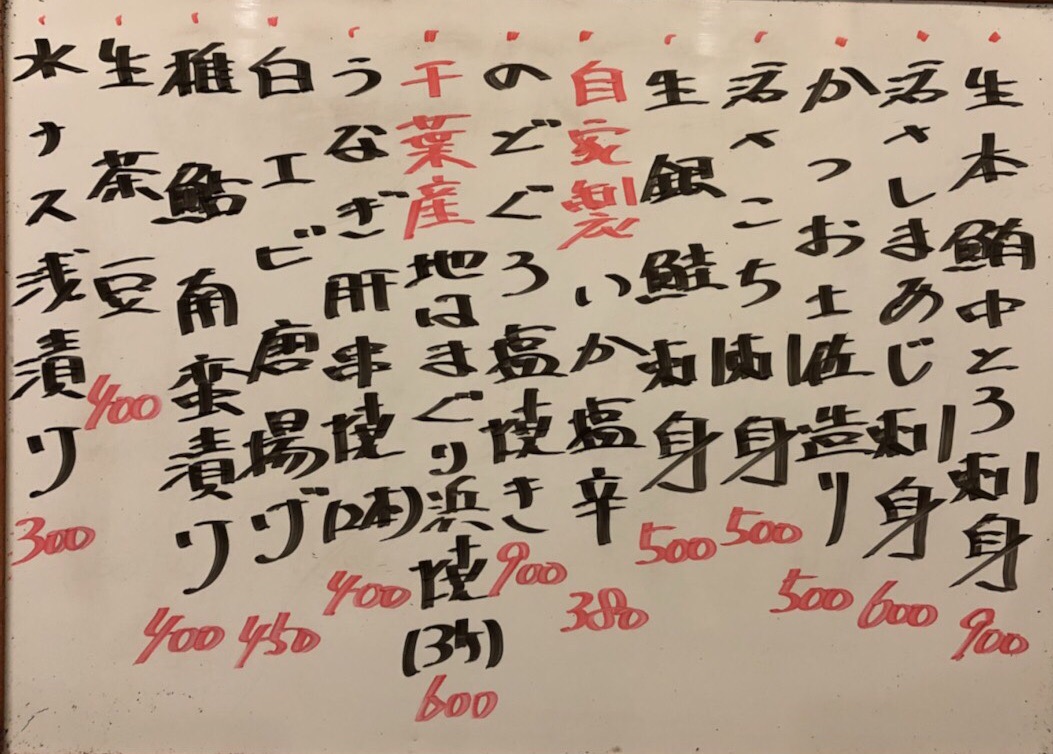 生本鮪中とろ刺身 900
活きしまあじ刺身 600
かつお土佐造り 500
活きこち刺身 500
生銀鮭刺身 500
自家製いか塩辛 380
のどぐろ塩焼き 900
千葉産地はまぐり浜焼(3ケ) 600
うなぎ肝串焼(2本) 400
白エビ唐揚げ 450
稚鮎南蛮漬け 400
生茶豆 400
水ナス浅漬け 300